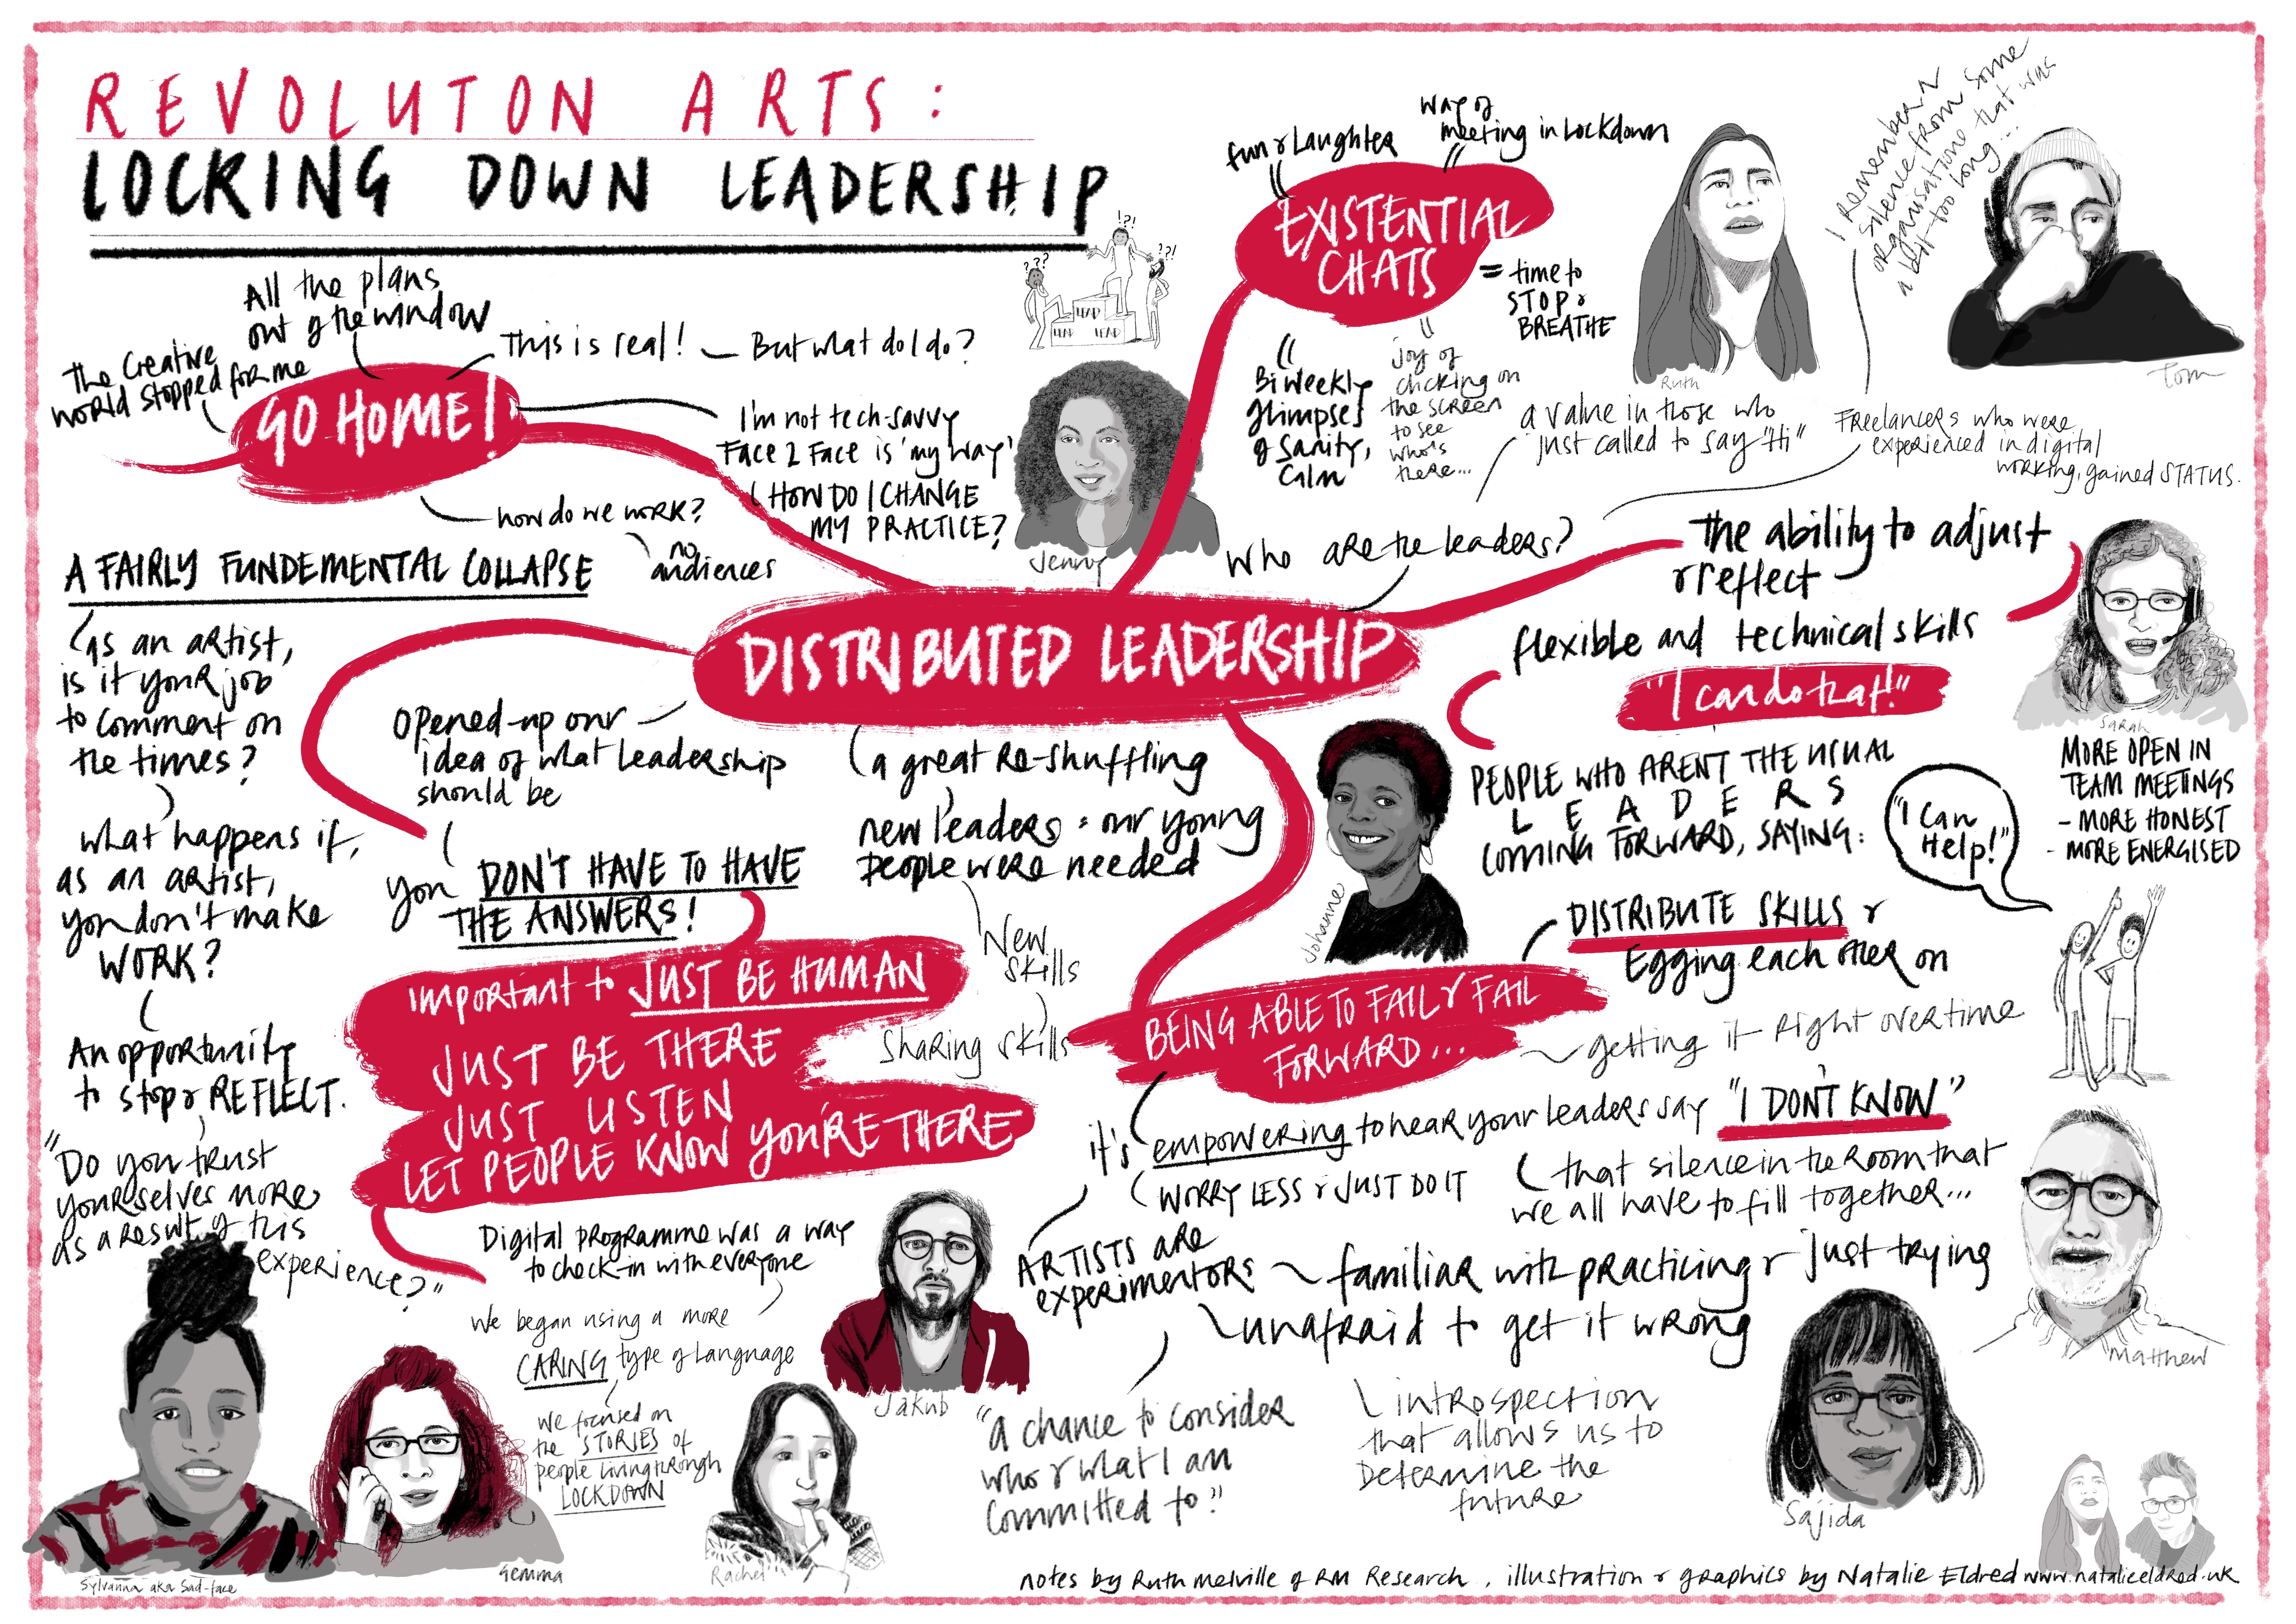 REVOLUTON ARTS:
LOCKING DOWN LEADERSHIP
!?!
???
??!
LEAD
LEAD
LEAD
All the plans
out of the window
The Creative
world stopped for me
This is real!
But what do I do?
GO HOME!
I'm not tech-savvy
Face 2 Face is 'my way'
HOW DO I CHANGE
MY PRACTICE?
how do we work?
no
audiences
Jenny
fun & Laughter
way of
meeting in Lockdown
EXISTENTIAL
CHATS
= time to
STOP &
BREATHE
Bi weekly
glimpses
of sanity,
calm
joy of
clicking on
the screen
to see
who's
there...
Ruth
I remember a
silence from some
organisations that was
a bit too long...
Tom
a value in those who
just called to say "Hi"
Freelancers who were
experienced in digital
working, gained STATUS.
who are the leaders?
the ability to adjust
& reflect
flexible and technical skills
"I can do that!"
Sarah
A FAIRLY FUNDEMENTAL COLLAPSE
as an artist,
is it your job
to comment on
the times?
what happens if,
as an artist,
you don't make
WORK?
An opportunity
to stop & REFLECT.
"Do you trust
yourselves more
as a result of this
experience?"
DISTRIBUTED LEADERSHIP
Opened-up our
idea of what Leadership
should be
you DON'T HAVE TO HAVE
THE ANSWERS!
a great re-shuffling
new leaders = our young
people were needed
New
skills
Sharing skills
Johanne
PEOPLE WHO ARENT THE USUAL
LEADERS
COMING FORWARD, SAYING:
"I Can
Help!"
MORE OPEN IN
TEAM MEETINGS
- MORE HONEST
- MORE ENERGISED
DISTRIBUTE SKILLS &
Egging each other on
important to JUST BE HUMAN
JUST BE THERE
JUST LISTEN
LET PEOPLE KNOW YOU'RE THERE
BEING ABLE TO FAIL & FAIL
FORWARD...
getting it right overtime
it's empowering to hear your leaders say "I DON'T KNOW"
WORRY LESS & JUST DO IT
that silence in the room that
we all have to fill together...
Digital programme was a way
to check-in with everyone
We began using a more
CARING type of Language
We focused on
the STORIES of
people living through
LOCKDOWN
ARTISTS are
experimentors
familiar with practicing & just trying
unafraid to get it wrong
"a chance to consider
who & what I am
committed to"
introspection
that allows us to
Determine the
future
Matthew
Sajida
Jakub
Rachel
Gemma
Sylvanna aka Sad-face
notes by Ruth Melville of RM Research, illustration & graphics by Natalie Eldred www.natalieeldred.uk